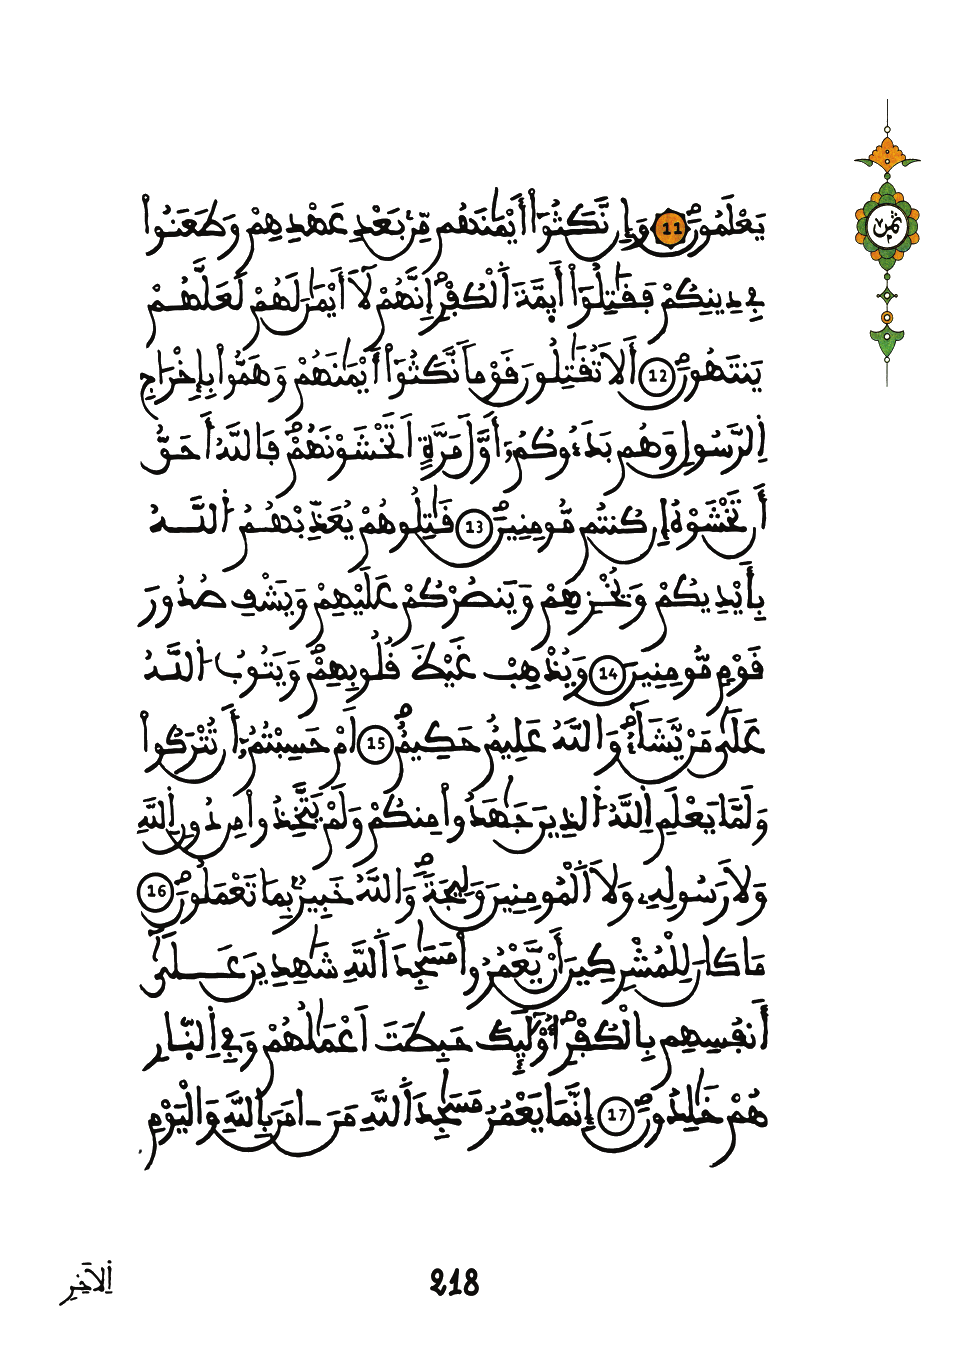 يَعْلَمُونَ 11 وَإِن نَّكَثُوٓاْ أَيْمَٰنَهُم مِّنۢ بَعْدِ عَهْدِهِمْ وَطَعَنُواْ
فِے دِينِكُمْ فَقَٰتِلُوٓاْ أَيِمَّةَ اَ۬لْكُفْرِ إِنَّهُمْ لَآ أَيْمَٰنَ لَهُمْ لَعَلَّهُمْ
يَنتَهُونَ 12 أَلَا تُقَٰتِلُونَ قَوْماٗ نَّكَثُوٓاْ أَيْمَٰنَهُمْ وَهَمُّواْ بِإِخْرَاجِ
اِ۬لرَّسُولِ وَهُم بَدَءُوكُمُۥٓ أَوَّلَ مَرَّةٍ اَتَخْشَوْنَهُمْۖ فَاللَّهُ أَحَقُّ
أَن تَخْشَوْهُ إِن كُنتُم مُّومِنِينَ 13 قَٰتِلُوهُمْ يُعَذِّبْهُمُ اُ۬للَّهُ
بِأَيْدِيكُمْ وَيُخْزِهِمْ وَيَنصُرْكُمْ عَلَيْهِمْ وَيَشْفِ صُدُورَ
قَوْمٖ مُّومِنِينَ 14 وَيُذْهِبْ غَيْظَ قُلُوبِهِمْۖ وَيَتُوبُ اُ۬للَّهُ
عَلَىٰ مَنْ يَّشَآءُۖ وَاللَّهُ عَلِيمٌ حَكِيمٌۖ 15 اَمْ حَسِبْتُمُۥٓ أَن تُتْرَكُواْ
وَلَمَّا يَعْلَمِ اِ۬للَّهُ اُ۬لذِينَ جَٰهَدُواْ مِنكُمْ وَلَمْ يَتَّخِذُواْ مِن دُونِ اِ۬للَّهِ
وَلَا رَسُولِهِۦ وَلَا اَ۬لْمُومِنِينَ وَلِيجَةٗۖ وَاللَّهُ خَبِيرُۢ بِمَا تَعْمَلُونَ 16
مَا كَانَ لِلْمُشْرِكِينَ أَنْ يَّعْمُرُواْ مَسَٰجِدَ اَ۬للَّهِ شَٰهِدِينَ عَلَىٰٓ
أَنفُسِهِم بِالْكُفْرِۖ أُوْلَٰٓئِكَ حَبِطَتَ اَعْمَٰلُهُمْ وَفِے اِ۬لنَّارِ
هُمْ خَٰلِدُونَ 17 إِنَّمَا يَعْمُرُ مَسَٰجِدَ اَ۬للَّهِ مَنَ ـ امَنَ بِاللَّهِ وَالْيَوْمِ
اِ۬لَاخِرِ
218
ثمن